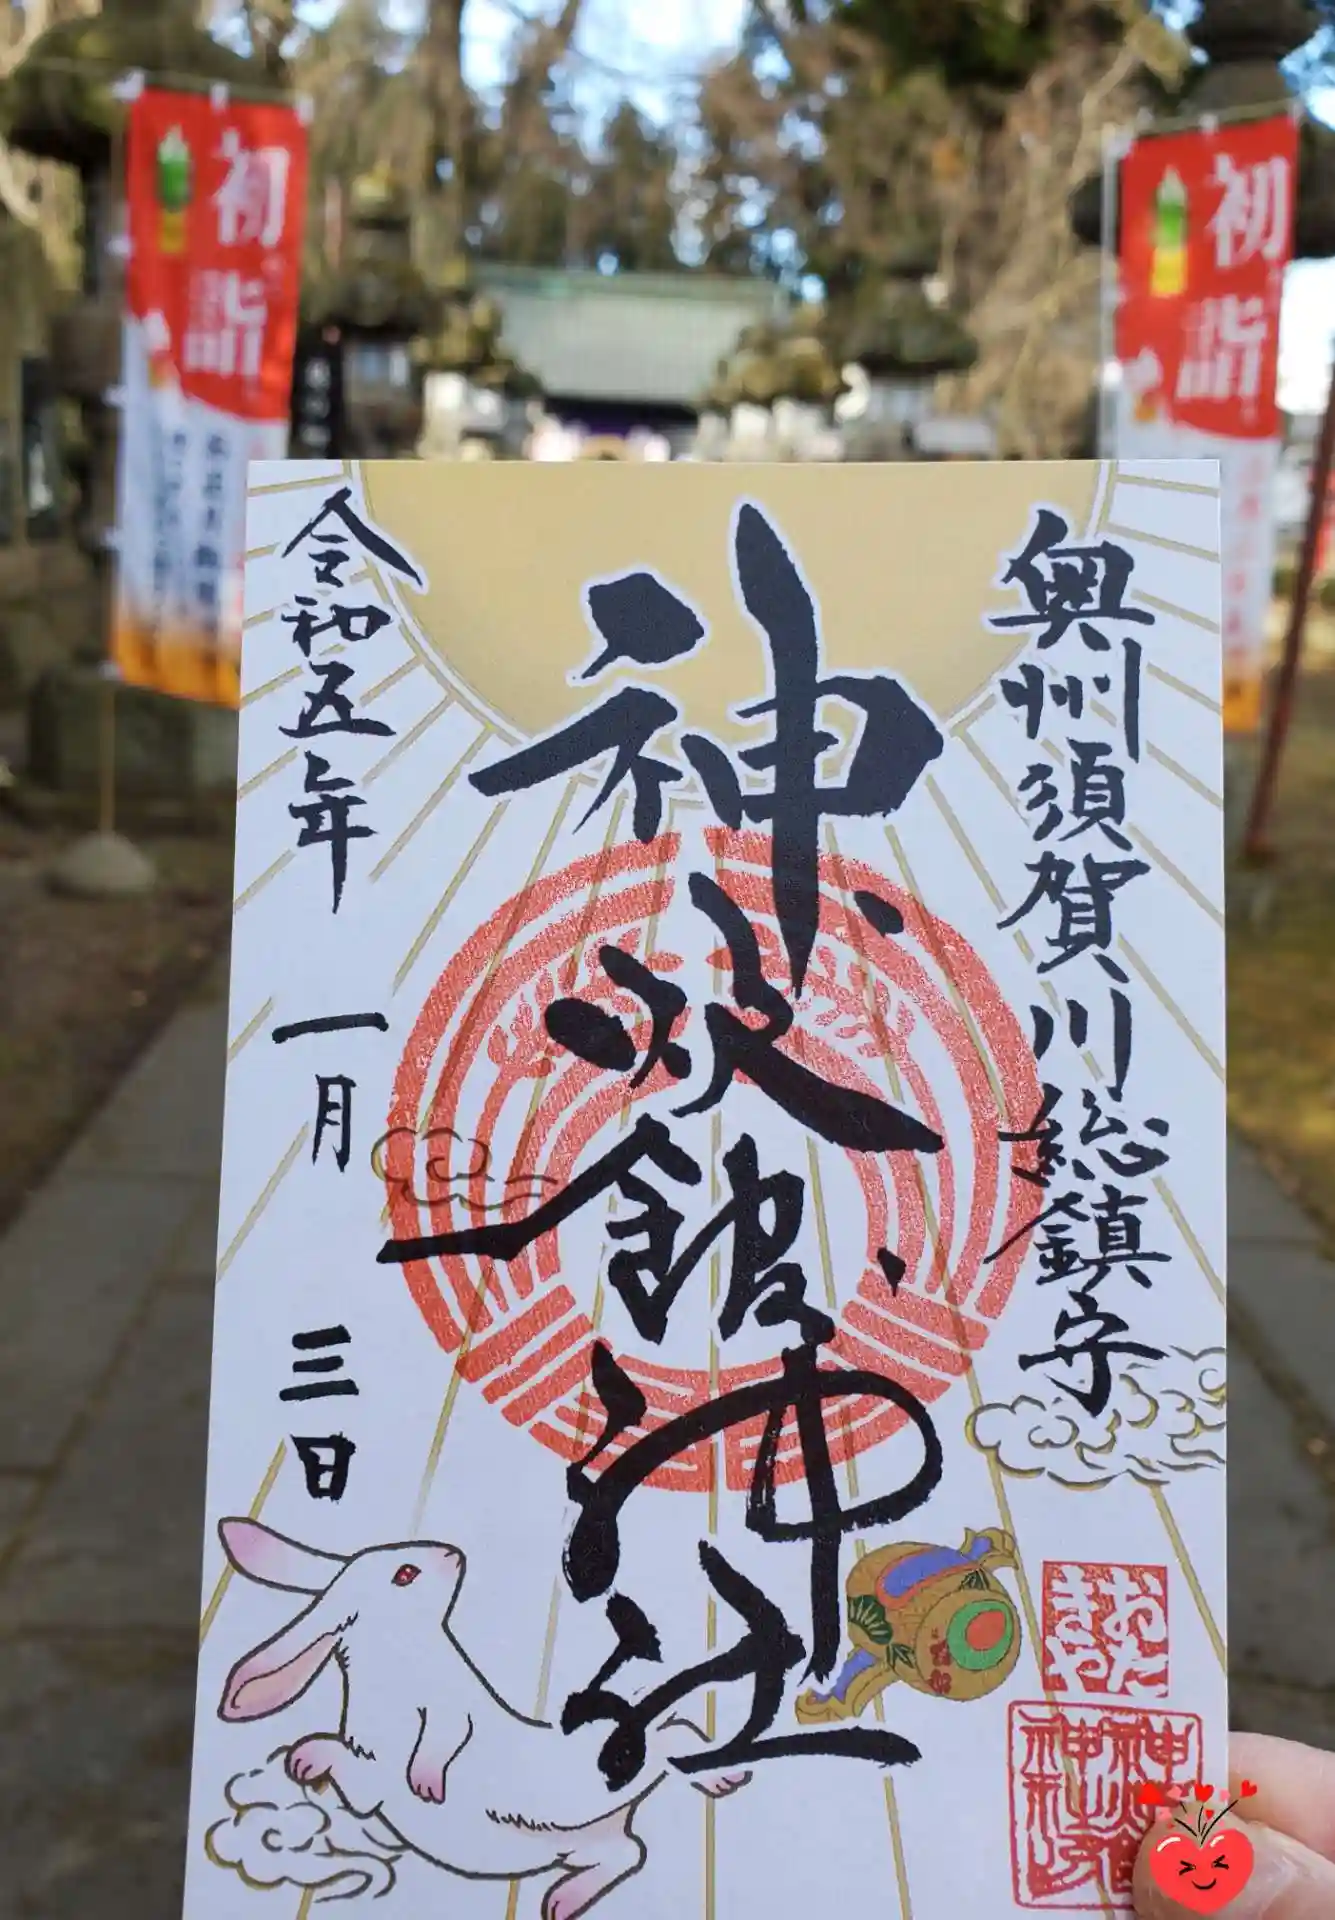 初詣
初詣
奥州須賀川総鎮守
神炊館神社
令和五年
一月
三日
おた
きや